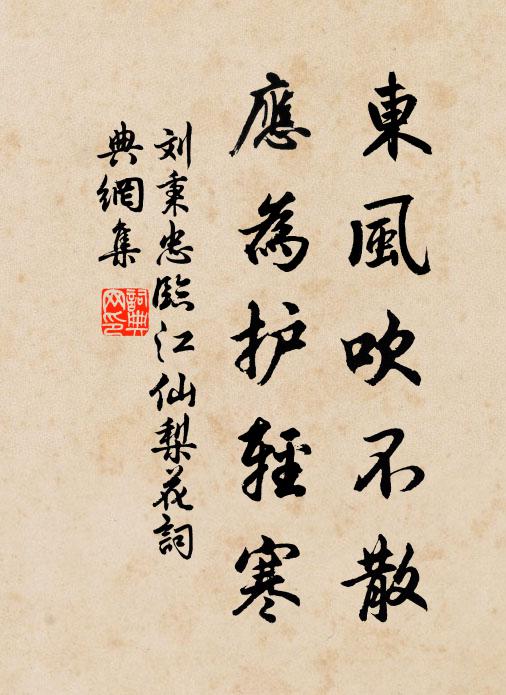 東風吹不散
應為护輕寒
刘秉忠臨江仙梨花詞
典網集
詞典
网印